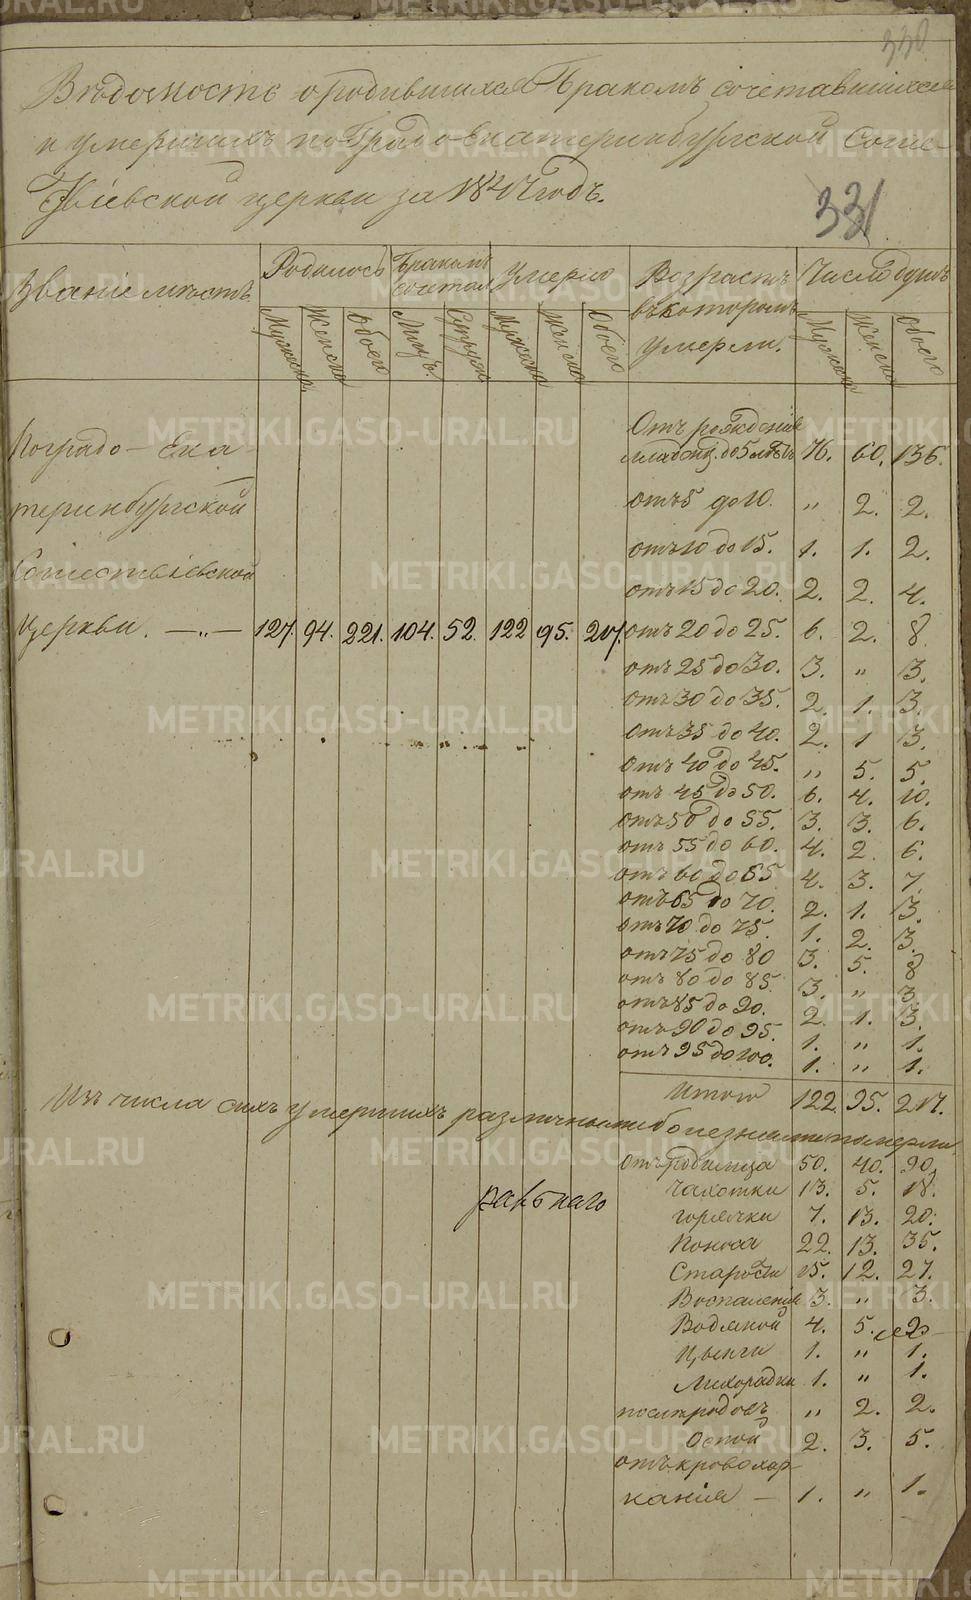 330
Вѣдомость о родившихся Бракомъ сочетавшихся
и умершихъ по Градо-екатеринбургской Соше-
ствіевской церкви за 1847 годъ.
331
Званіе мѣстъ. Родилось Бракомъ сочетал. Умерло Возрастъ въ которомъ умерли. Число душъ
Мужеска Женска Обоего Лицъ. Супруж. Мужеска Женска Обоего Мужеска Женска Обоего
По градо-Ека-
теринбургской
Сошествіевской
церкви. —„— 127. 94. 221. 104. 52. 122 95. 217.
Отъ рожденія
младенц. до 5 лѣтъ 76. 60. 136.
отъ 5 до 10. „ 2. 2.
отъ 10 до 15. 1. 1. 2.
отъ 15 до 20. 2. 2. 4.
отъ 20 до 25. 6. 2. 8.
отъ 25 до 30. 3. „ 3.
отъ 30 до 35. 2. 1. 3.
отъ 35 до 40. 2. 1 3.
отъ 40 до 45. „ 5. 5.
отъ 45 до 50. 6. 4. 10.
отъ 50 до 55. 3. 3. 6.
отъ 55 до 60. 4. 2 6.
отъ 60 до 65 4. 3. 7.
отъ 65 до 70. 2. 1. 3.
отъ 70 до 75. 1. 2. 3.
отъ 75 до 80 3. 5. 8
отъ 80 до 85. 3. „ 3.
отъ 85 до 90. 2. 1. 3.
отъ 90 до 95. 1. „ 1.
отъ 95 до 100. 1. „ 1.
Итого 122. 95. 217.
Изъ числа сихъ умершихъ различными болезнями померли
отъ Родимца 50. 40. 90.
чахотки 13. 5. 18.
горячки 7. 13. 20.
Поноса 22. 13. 35.
Старости 15. 12. 27.
Воспаленія 3. „ 3.
Водяной 4. 5. 9
Цынги 1. „ 1.
Лихорадки 1. „ 1.
после родовъ „ 2. 2.
Оспой 2. 3. 5.
отъ кровохар-
канія — 1. „ 1.
METRIKI.GASO-URAL.RU